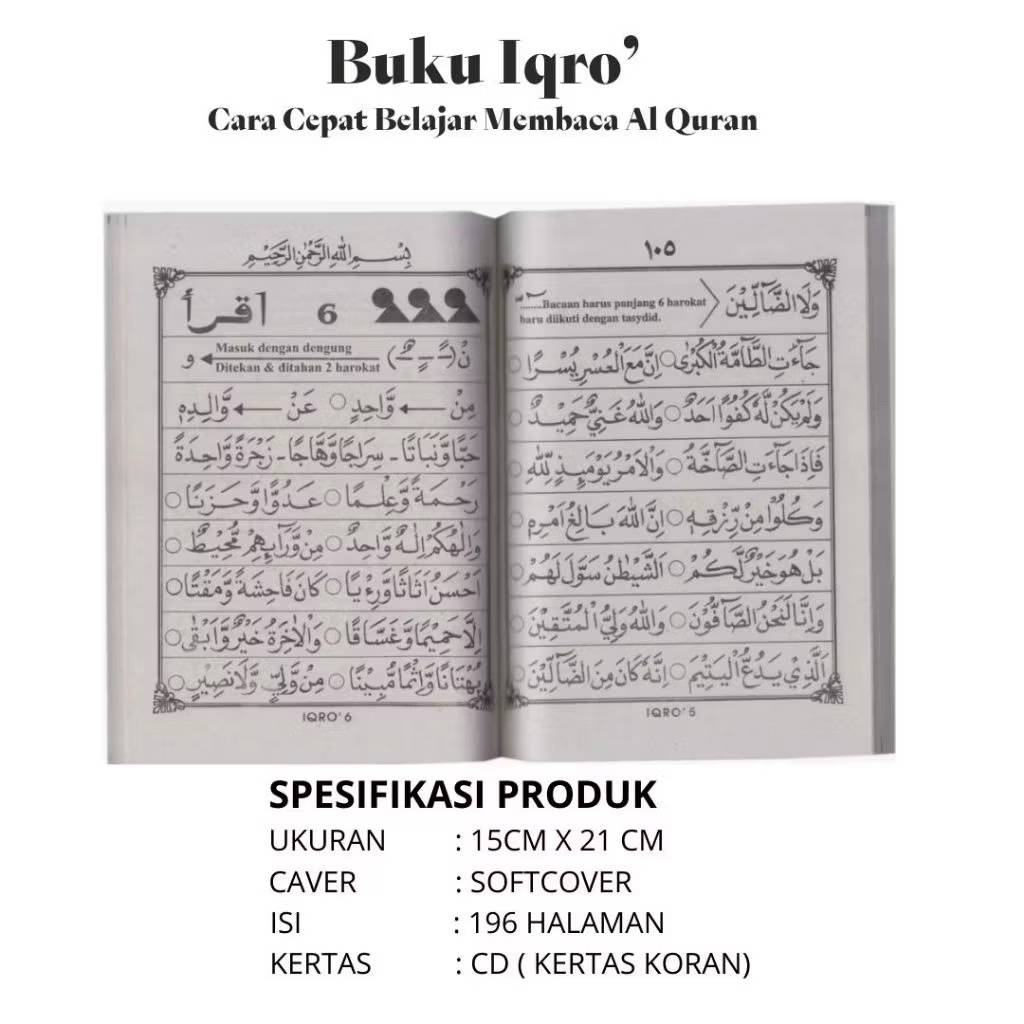 Buku Iqro’
Cara Cepat Belajar Membaca Al Quran
١٠٥
وَلَا الضَّآلِّيْنَ
........Bacaan harus panjang 6 harokat
baru diikuti dengan tasydid.
جَآءَتِ الطَّآمَّةُ الْكُبْرٰى ○ اِنَّ مَعَ الْعُسْرِ يُسْرًا ○
وَلَمْ يَكُنْ لَّهٗ كُفُوًا اَحَدٌ ○ وَاللّٰهُ غَنِيٌّ حَمِيْدٌ ○
فَاِذَا جَآءَتِ الصَّآخَّةُ ○ وَالْاَمْرُ يَوْمَئِذٍ لِّلّٰهِ ○
وَكُلُوْا مِنْ رِّزْقِهٖ ○ اِنَّ اللّٰهَ بَالِغُ اَمْرِهٖ ○
بَلْ هُوَ خَيْرٌ لَّكُمْ ○ اَلشَّيْطٰنُ سَوَّلَ لَهُمْ ○
وَاِنَّا لَنَحْنُ الصَّآفُّوْنَ ○ وَاللّٰهُ وَلِيُّ الْمُتَّقِيْنَ ○
اَلَّذِيْ يَدُعُّ الْيَتِيْمَ ○ اِنَّهٗ كَانَ مِنَ الضَّآلِّيْنَ ○
IQRO' 5
بِسْمِ اللّٰهِ الرَّحْمٰنِ الرَّحِيْمِ
اقرأ 6
نْ (ــًــٍــٌ) و
Masuk dengan dengung
Ditekan & ditahan 2 harokat
مِنْ ← وَّاحِدٍ ○ عَنْ ← وَّالِدِهٖ
حَبًّا وَّنَبَاتًا - سِرَاجًا وَّهَّاجًا - زَجْرَةٌ وَّاحِدَةٌ
رَحْمَةً وَّعِلْمًا ○ عَدُوًّا وَّحَزَنًا ○
وَاِلٰهُكُمْ اِلٰهٌ وَّاحِدٌ ○ مِنْ وَّرَآئِهِمْ مُّحِيْطٌ ○
اَحْسَنُ اَثَاثًا وَّرِءْيًا ○ كَانَ فَاحِشَةً وَّمَقْتًا ○
اِلَّا حَمِيْمًا وَّغَسَّاقًا ○ وَالْاٰخِرَةُ خَيْرٌ وَّاَبْقٰى ○
بُهْتَانًا وَّاِثْمًا مُّبِيْنًا ○ مِنْ وَّلِيٍّ وَّلَا نَصِيْرٍ ○
IQRO' 6
SPESIFIKASI PRODUK
UKURAN : 15CM X 21 CM
CAVER : SOFTCOVER
ISI : 196 HALAMAN
KERTAS : CD ( KERTAS KORAN)